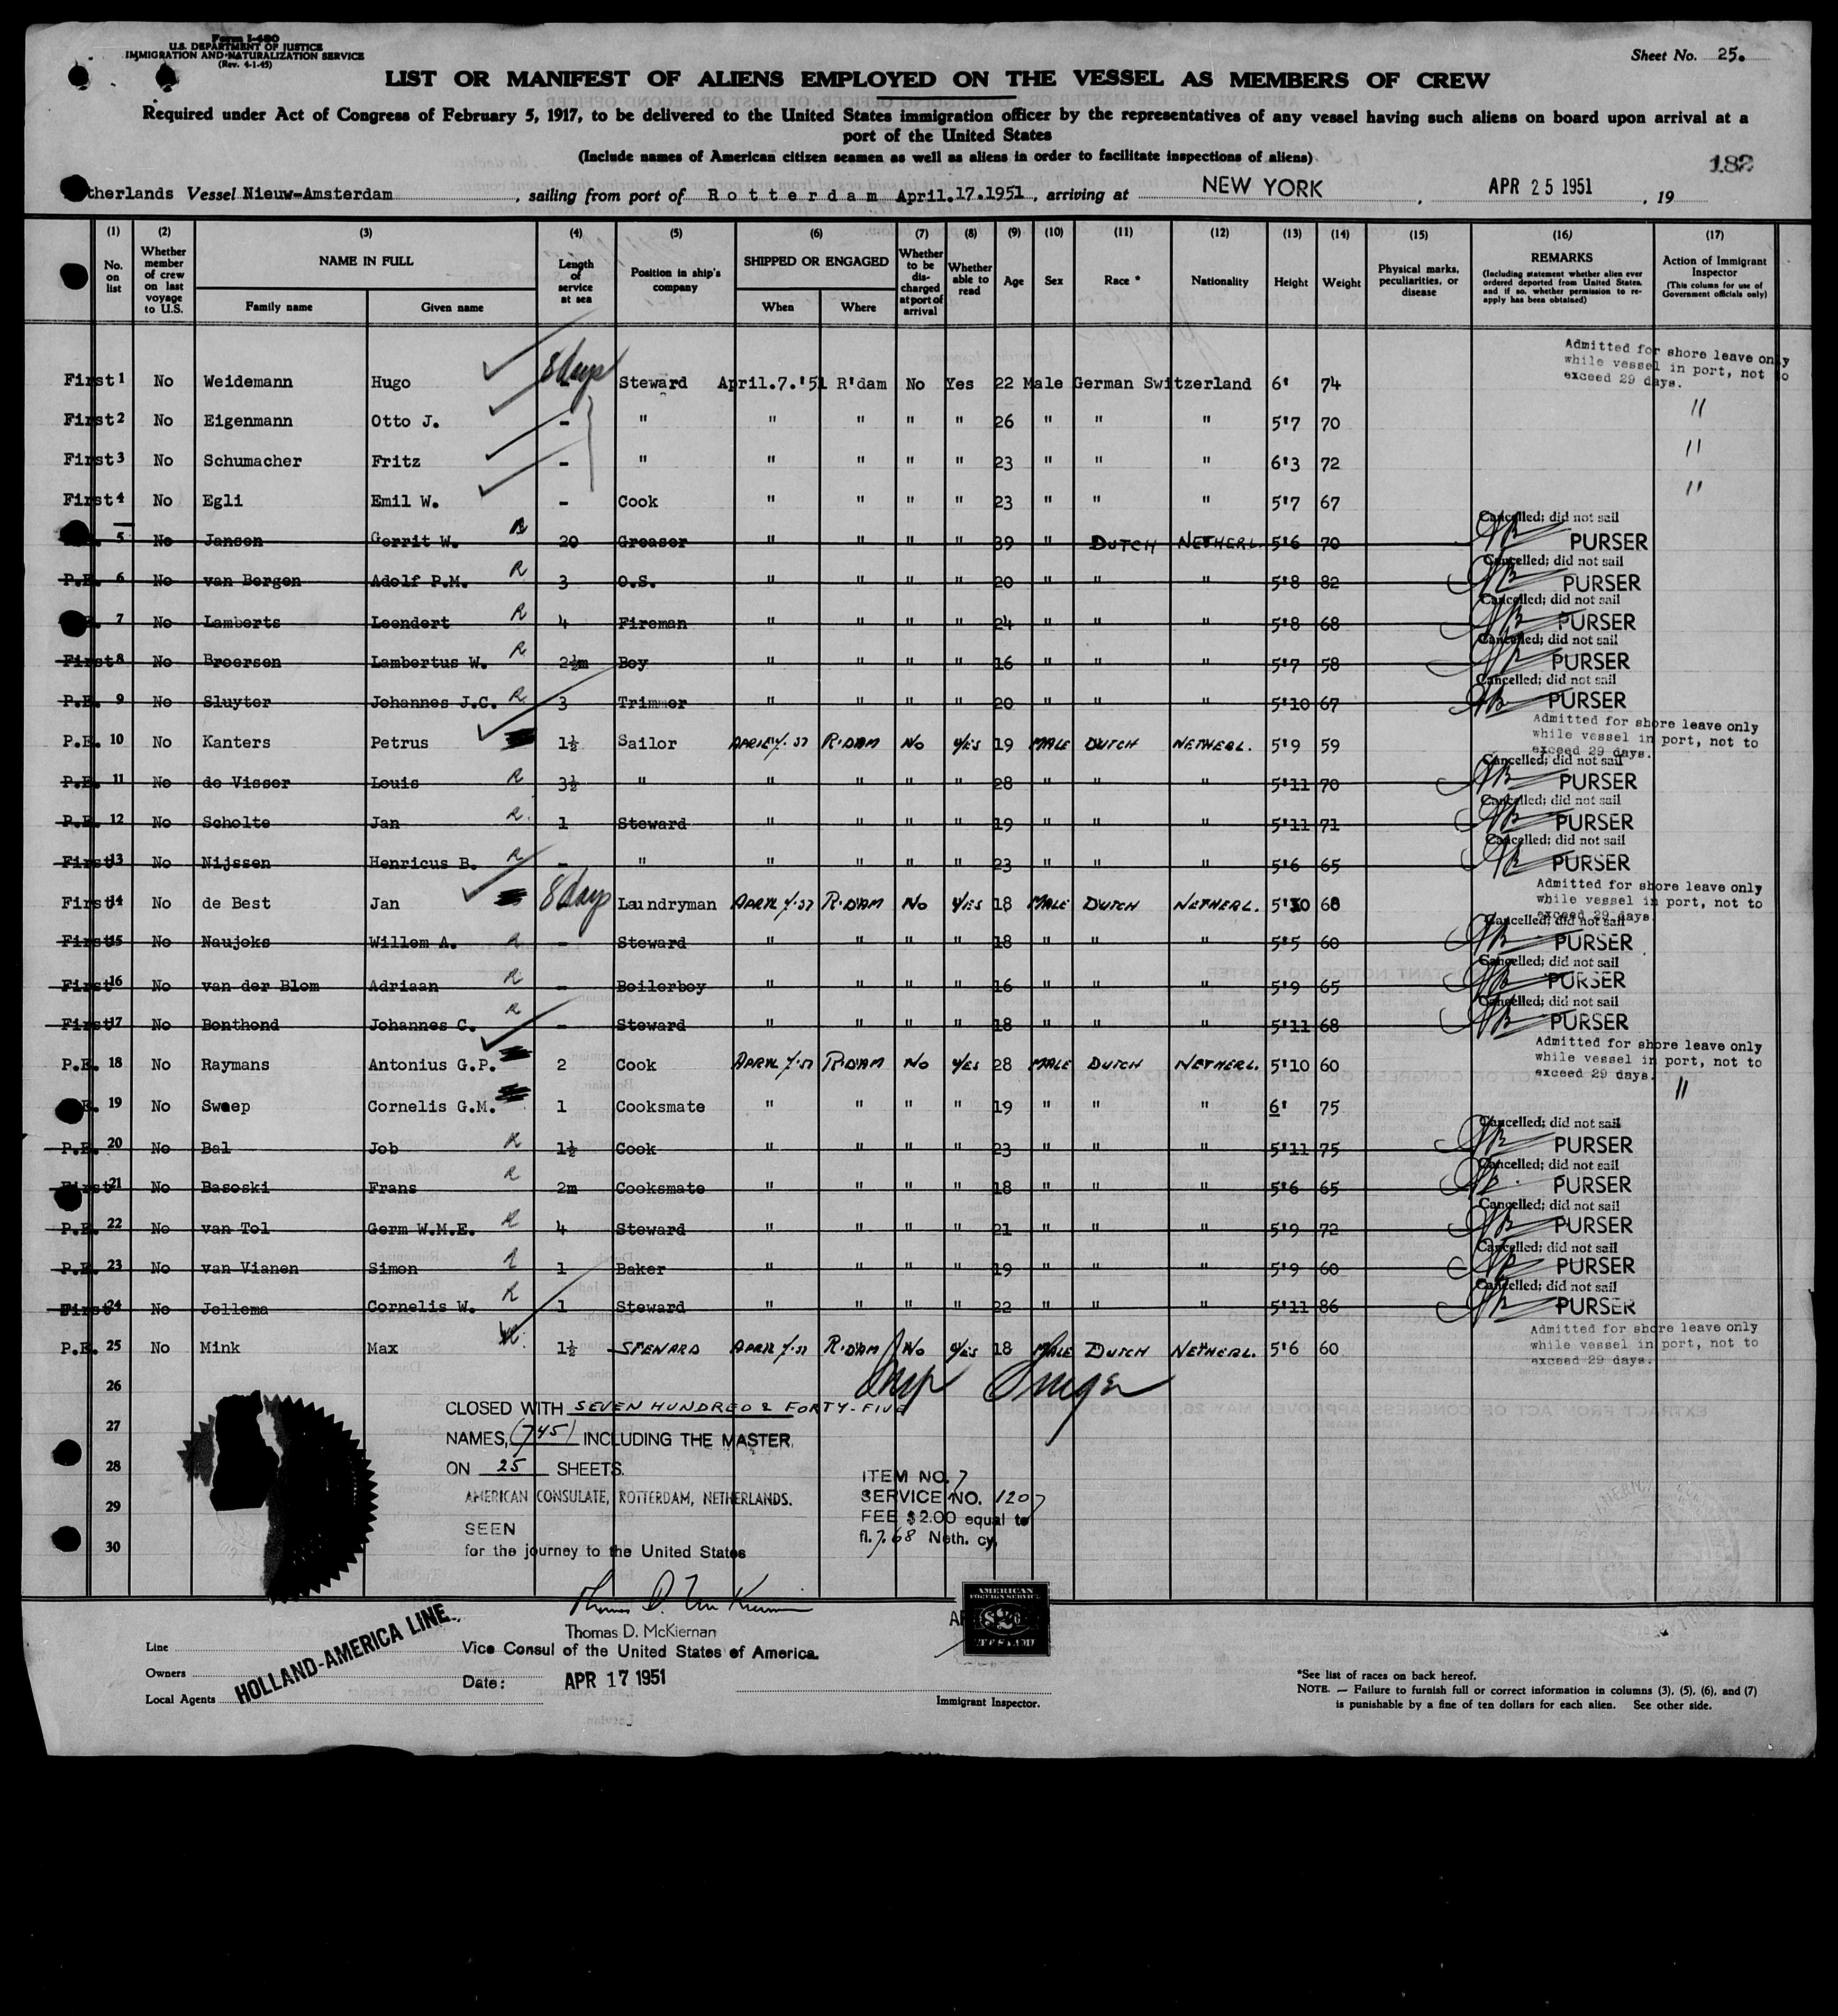 Form I-480
U.S. DEPARTMENT OF JUSTICE
IMMIGRATION AND NATURALIZATION SERVICE
(Rev. 4-1-45)
Sheet No. 25.
LIST OR MANIFEST OF ALIENS EMPLOYED ON THE VESSEL AS MEMBERS OF CREW
Required under Act of Congress of February 5, 1917, to be delivered to the United States immigration officer by the representatives of any vessel having such aliens on board upon arrival at a
port of the United States
(Include names of American citizen seamen as well as aliens in order to facilitate inspections of aliens)
182
therlands Vessel Nieuw-Amsterdam, sailing from port of Rotterdam April.17.1951, arriving at NEW YORK, APR 25 1951, 19
(1) (2) (3) (4) (5) (6) (7) (8) (9) (10) (11) (12) (13) (14) (15) (16) (17)
No. on list Whether member of crew on last voyage to U.S. NAME IN FULL Family name Given name Length of service at sea Position in ship's company SHIPPED OR ENGAGED When Where Whether to be discharged at port of arrival Whether able to read Age Sex Race * Nationality Height Weight Physical marks, peculiarities, or disease REMARKS (Including statement whether alien ever ordered deported from United States, and if so, whether permission to re-apply has been obtained) Action of Immigrant Inspector (This column for use of Government officials only)
First 1 No Weidemann Hugo 8 days Steward April.7.'51 R'dam No Yes 22 Male German Switzerland 6' 74 Admitted for shore leave only while vessel in port, not to exceed 29 days.
First 2 No Eigenmann Otto J. - " " " " " 26 " " " 5'7 70 "
First 3 No Schumacher Fritz - " " " " " 23 " " " 6'3 72 "
First 4 No Egli Emil W. - Cook " " " " 23 " " " 5'7 67 "
5 No Jansen Gerrit W. R 20 Greaser " " " " 39 " DUTCH NETHERL. 5'6 70 Cancelled; did not sail PURSER
P.E. 6 No van Bergen Adolf P.M. R 3 O.S. " " " " 20 " " " 5'8 82 Cancelled; did not sail PURSER
7 No Lamberts Leendert R 4 Fireman " " " " 24 " " " 5'8 68 Cancelled; did not sail PURSER
First 8 No Broersen Lambertus W. R 2½m Boy " " " " 16 " " " 5'7 58 Cancelled; did not sail PURSER
P.E. 9 No Sluyter Johannes J.C. R 3 Trimmer " " " " 20 " " " 5'10 67 Cancelled; did not sail PURSER
P.E. 10 No Kanters Petrus 1½ Sailor R'DAM NO YES 19 MALE DUTCH NETHERL. 5'9 59 Admitted for shore leave only while vessel in port, not to exceed 29 days.
P.E. 11 No de Visser Louis R 3½ " " " " " 28 " " " 5'11 70 Cancelled; did not sail PURSER
P.E. 12 No Scholte Jan R. 1 Steward " " " " 19 " " " 5'11 71 Cancelled; did not sail PURSER
First 13 No Nijssen Henricus B. R - " " " " " 23 " " " 5'6 65 Cancelled; did not sail PURSER
First 14 No de Best Jan 8 days Laundryman R'DAM NO YES 18 MALE DUTCH NETHERL. 68 Admitted for shore leave only while vessel in port, not to exceed 29 days.
First 15 No Naujoks Willem A. R - Steward " " " " 18 " " " 5'5 60 Cancelled; did not sail PURSER
First 16 No van der Blom Adriaan R - Boilerboy " " " " 16 " " " 5'9 65 Cancelled; did not sail PURSER
First 17 No Bonthond Johannes C. R - Steward " " " " 18 " " " 5'11 68 Cancelled; did not sail PURSER
P.E. 18 No Raymans Antonius G.P. 2 Cook R'DAM NO YES 28 MALE DUTCH NETHERL. 5'10 60 Admitted for shore leave only while vessel in port, not to exceed 29 days.
19 No Sweep Cornelis G.M. 1 Cooksmate " " " " 19 " " " 6' 75 "
P.E. 20 No Bal Job R 1½ Cook " " " " 23 " " " 5'11 75 Cancelled; did not sail PURSER
First 21 No Basoski Frans R 2m Cooksmate " " " " 18 " " " 5'6 65 Cancelled; did not sail PURSER
P.E. 22 No van Tol Germ W.M.E. R 4 Steward " " " " 21 " " " 5'9 72 Cancelled; did not sail PURSER
P.E. 23 No van Vianen Simon R 1 Baker " " " " 19 " " " 5'9 60 Cancelled; did not sail PURSER
First 24 No Jellema Cornelis W. R 1 Steward " " " " 22 " " " 5'11 86 Cancelled; did not sail PURSER
P.E. 25 No Mink Max 1½ STEWARD R'DAM NO YES 18 MALE DUTCH NETHERL. 5'6 60 Admitted for shore leave only while vessel in port, not to exceed 29 days.
26
CLOSED WITH SEVEN HUNDRED & FORTY-FIVE
27
NAMES, (745) INCLUDING THE MASTER.
28
ON 25 SHEETS.
ITEM NO. 7
29
AMERICAN CONSULATE, ROTTERDAM, NETHERLANDS.
SERVICE NO. 1207
SEEN
FEE $2.00 equal to
30
for the journey to the United States
fl. 7.68 Neth. cy.
AMERICAN FOREIGN SERVICE
Thomas D. McKiernan
Line
HOLLAND-AMERICA LINE.
Vice Consul of the United States of America.
Owners
Date: APR 17 1951
Local Agents
Immigrant Inspector.
*See list of races on back hereof.
NOTE. — Failure to furnish full or correct information in columns (3), (5), (6), and (7)
is punishable by a fine of ten dollars for each alien. See other side.